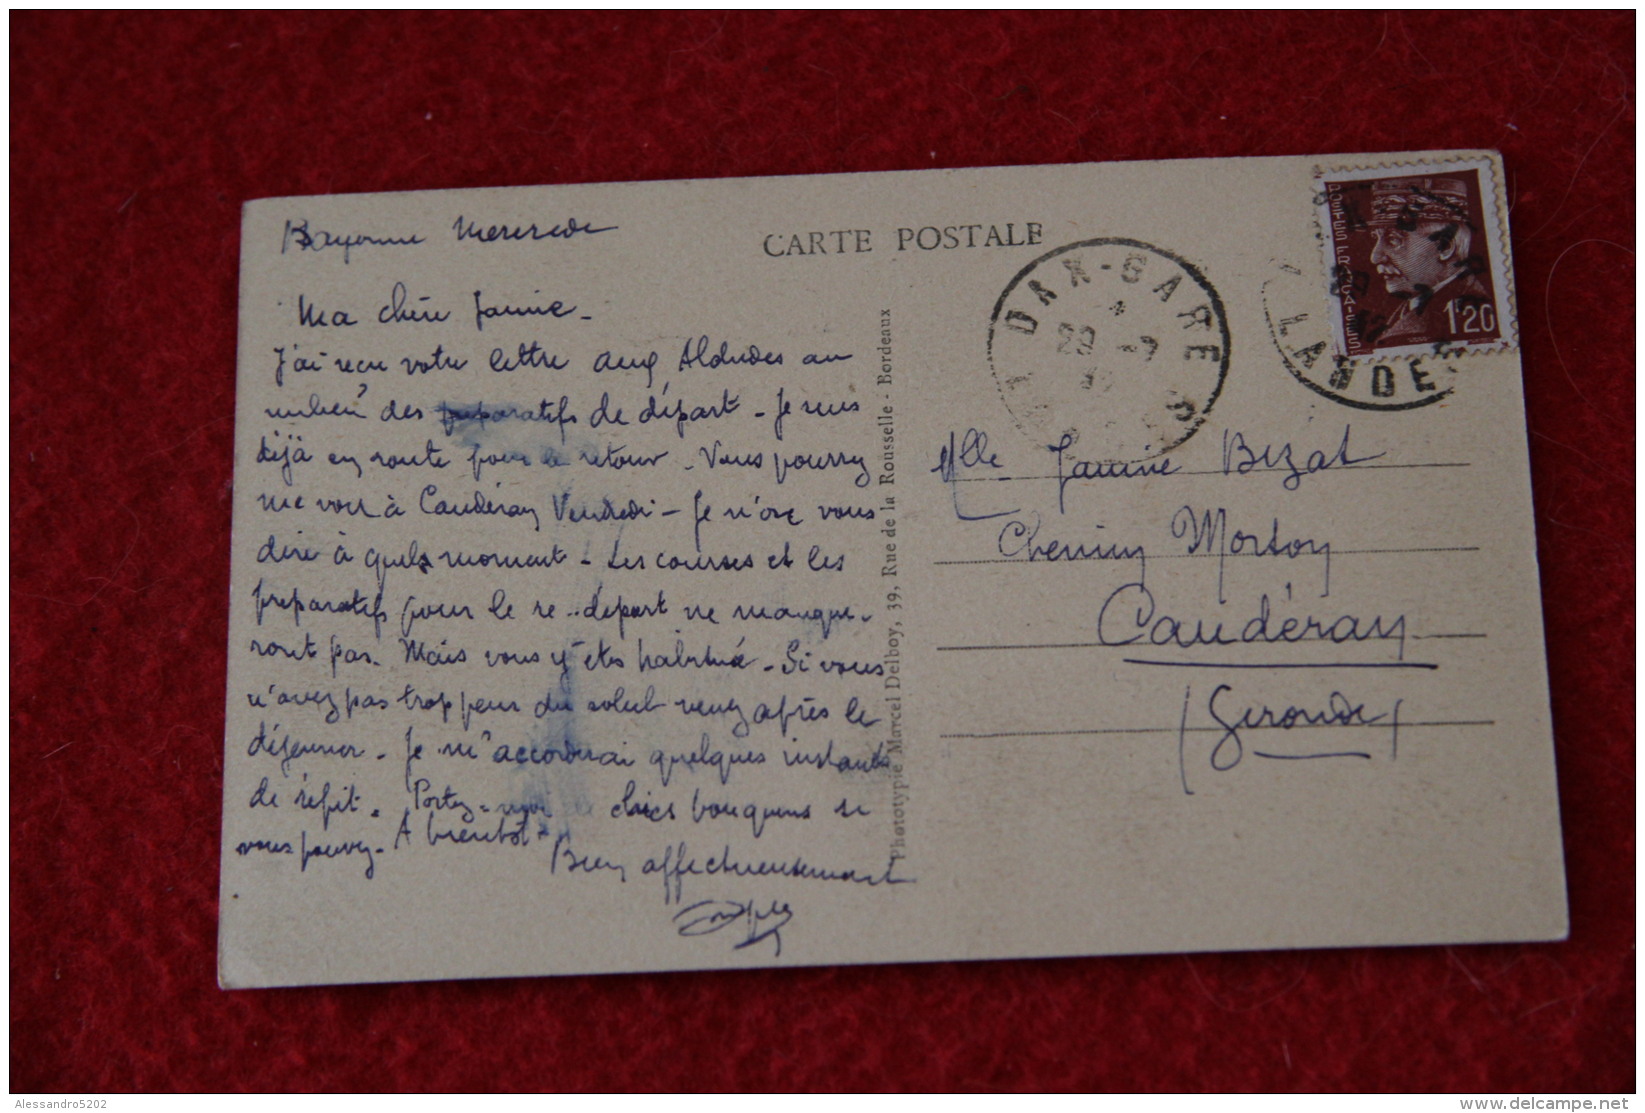 Bayonne Mercredi
CARTE POSTALE
Ma chère Janine -
J'ai reçu votre lettre aux Aldudes au
milieu des préparatifs de départ - Je suis
déjà en route pour le retour - Vous pourrez
me voir à Caudéran Vendredi - Je n'ose vous
dire à quels moment - Les courses et les
préparatifs pour le re-départ ne manque-
ront pas - Mais vous y êtes habitué - Si vous
n'avez pas trop peur du soleil venez après le
déjeuner - Je m'accorderai quelques instants
de répit. Portez-moi chics bouquins si
vous pouvez - A bientôt -
Bien affectueusement
Phototypie Marcel Delboy, 39, Rue de la Rousselle - Bordeaux
DAX-GARE
20 -7
LANDES
POSTES FRANÇAISES
1F20
Mlle Janine Bizat
Chemin Morton
Caudéran
(Gironde)
Alessandro5202
delcampe.net